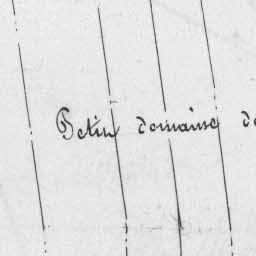 Petin domaine de